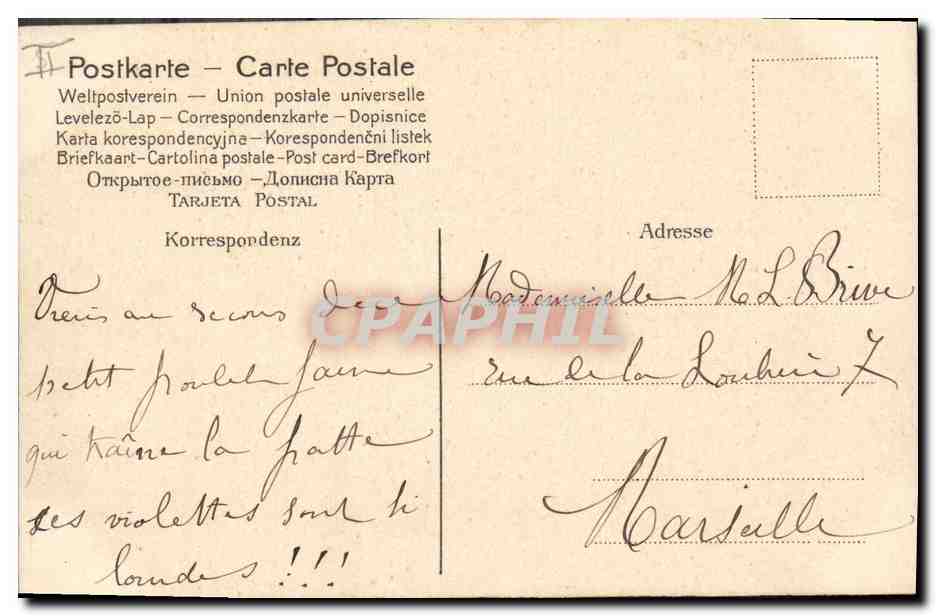 II Postkarte — Carte Postale
Weltpostverein — Union postale universelle
Levelezõ-Lap — Correspondenzkarte — Dopisnice
Karta korespondencyjna — Korespondenční listek
Briefkaart - Cartolina postale - Post card - Brefkort
Открытое-письмо — Дописна Карта
TARJETA POSTAL
Korrespondenz
Viens au secours des
petit poulet jaune
qui traîne la patte
les violettes sont si
lourdes !!!
Adresse
Mademoiselle M L Brive
rue de la Loubière 7
Marseille
CPAPHIL